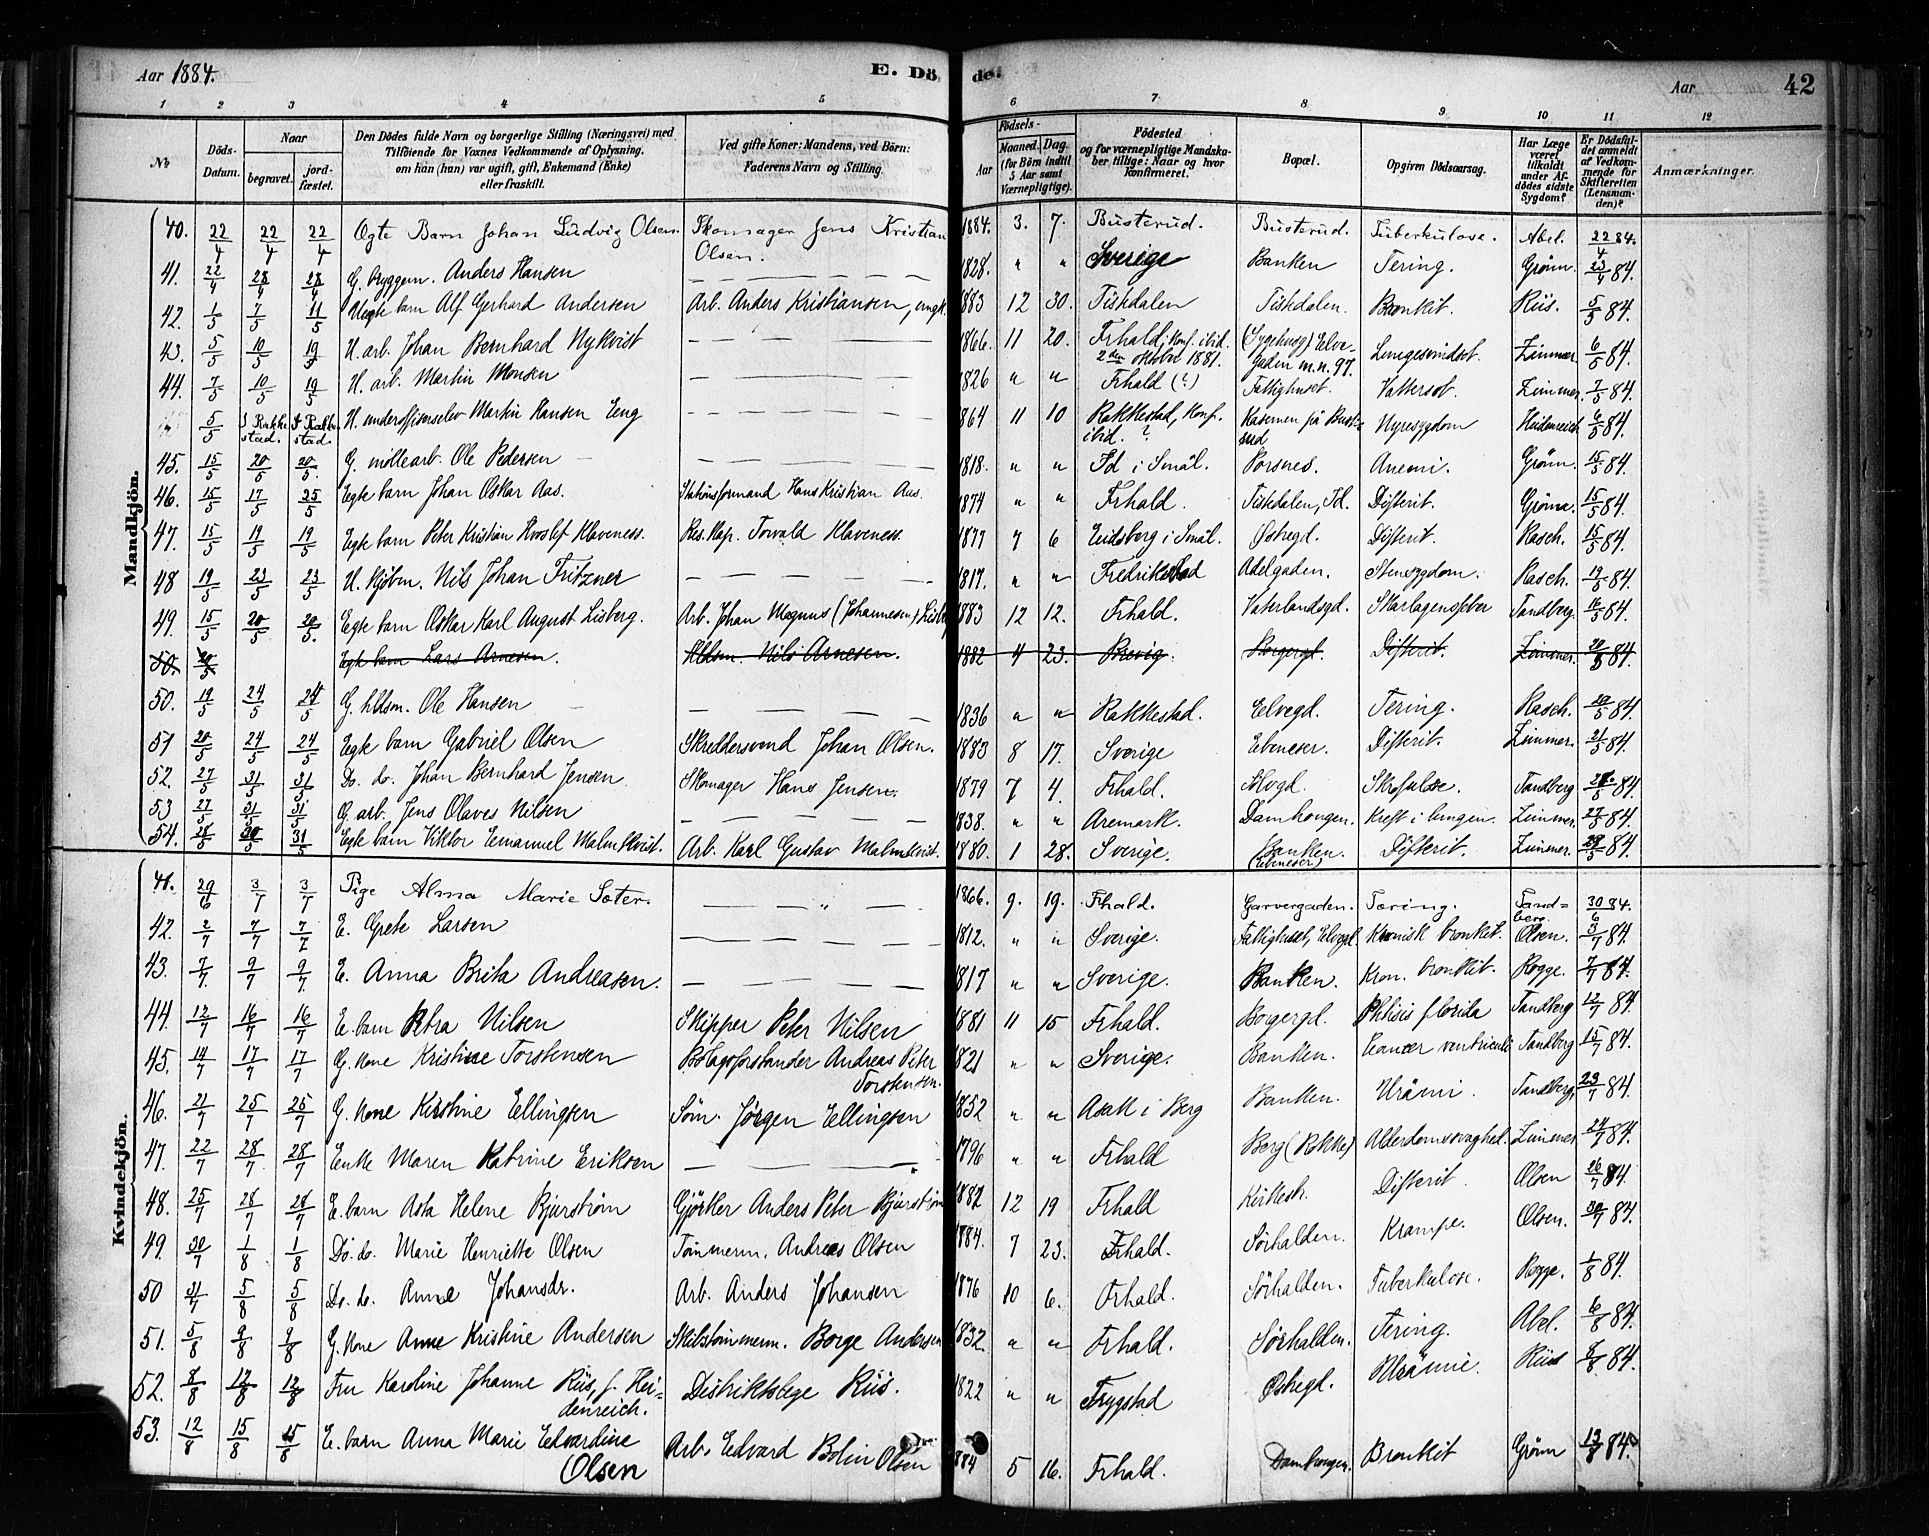 Aar 1884. E. Döde. Aar 42
1 2 3 4 5 6 7 8 9 10 11 12
No Döds-Datum. Naar begravet. jordfæstet. Den Dödes fulde Navn og borgerlige Stilling (Næringsvei) med Tilföiende for Voxnes Vedkommende af Oplysning, om han (hun) var ugift, gift, Enkemand (Enke) eller fraskilt. Ved gifte Koner: Mandens, ved Börn: Faderens Navn og Stilling. Födsels- Aar Maaned. Dag. (for Börn indtil 5 Aar samt Værnepligtige). Födested og for værnepligtige Mandskaber tillige: Naar og hvor Konfirmeret. Bopæl. Opgiven Dödsaarsag. Har Læge været tilkaldt under Afdödes sidste Sygdom? Er Dödsfaldet anmeldt af Vedkommende for Skifteretten (Lensmanden)? Anmærkninger.
Mandkjön.
40. 22/4 22/4 22/4 Ægte Barn Johan Ludvig Olsen. Skomager Jens Kristian Olsen. 1884. 3. 7. Busterud. Busterud. Tuberkulose. Abel. 22/4 84.
41. 22/4 28/4 28/4 G. bryggem. Anders Hansen — — — 1828. " " Sverige Banken Tering. Grønn. 23/4 84.
42. 1/5 7/5 11/5 Uegte barn Alf Gerhard Andersen Arb. Anders Kristiansen, ungk. 1883 12 30. Tistdalen Tistdalen. Bronkit. Riis. 5/5 84.
43. 5/5 10/5 19/5 U. arb. Johan Bernhard Nykvist — — — 1866. 11 20. Frhald, Konf. ibid. 2den oktober 1881. (Sygehusg) Elvegaden m.n. 97. Lungesvindsot. Zimmer. 6/5 84.
44. 7/5 10/5 19/5 U. arb. Martin Monsen — — — 1826 " " Frhald (?) Fattighuset. Vattersot. Zimmer. 7/5 84.
5/5 I Rakkestad. I Rakkestad. U. underoffisierselev Martin Hansen Eeng — — — 1864 11 10 Rakkestad, Konf. ibid. ? Kasernen på Busterud Nyresygdom Heidenreich 6/5 84.
45. 15/5 20/5 20/5. G. møllearb. Ole Pedersen — — — 1818. " " Id i Smål. Porsnes. Anemi. Grønn. 15/5 84.
46. 15/5 17/5 25/5 Egte barn Johan Oskar Aas. Stationsformand Hans Kristian Aas. 1874 " " Frhald. Tistdalen, Id. Difterit. Grønn. 15/5 84.
47. 15/5 19/5 19/5 Egte barn Peter Kristian Klaveness. Res. Kap. Torvald Klaveness. 1877 7 6 Eidsberg i Smål. Østregd. Difterit. Rasch. 15/5 84.
48 19/5 23/5 23/5 U. Kjøbm. Nils Johan Fritzner — — — 1817. " " Fredrikstad Adelgaden. Stensygdom. Rasch. 19/5 84.
49. 15/5 20/5 20/5. Egte barn Oskar Karl August Lisberg. Arb. Johan Magnus (Johannesen) Lisberg 1883 12 12. Frhald. Vaterlandsgd. Skarlagensfeber Tandberg. 16/5 84.
50. 20/5 Egte barn Lars Arnesen. Hldsm. Nils Arnesen. 1882 4 23. Brevig. Borgergd. Difterit. Zimmer. 20/5 84.
50. 19/5 24/5 24/5 G. hldsm. Ole Hansen — — — 1836 " " Rakkestad. Elvegd. Tering. Rasch. 20/5 84.
51 20/5 24/5 24/5 Egte barn Gabriel Olsen Skreddersvend Johan Olsen. 1883 8 17. Sverige Ebeneser. Difterit. Zimmer. 21/5 84.
52. 27/5 31/5 31/5 Do. do. Johan Bernhard Jensen Skomager Hans Jensen. 1879 7 4. Frhald. Skrofulose. Tandberg 28/5 84.
53 27/5 31/5 31/5 G. arb. Jens Olaves Nilsen — — — 1838. " " Aremark. Damhougen. Kreft i lungen. Zimmer. 27/5 84.
54. 28/5 31/5 Egte barn Viktor Emanuel Malmkvist. Arb. Karl Gustav Malmkvist. 1880. 1 28. Sverige. Banken. (Ebeneser) Difterit. Zimmer. 29/5 84.
Kvindekjön.
41. 29/6 3/7 3/7 Pige Alma Marie Soter. — " — 1866. 9. 19. Frhald. Garvergaden. Tæring. Tandberg. 30/6 84.
42. 2/7 7/7 7/7 E. Grete Larsen — — — 1812. " " Sverige. Fattighuset, Elvegd. Kronisk bronkit. Olsen. 3/7 84.
43. 7/7. 9/7 9/7. E. Anna Brita Andreasen. — — — 1817 " " Sverige. Banken. Kron. bronkit. Rogge. 7/7 84.
44. 12/7 16/7 16/7 E. barn Petra Nilsen Skipper Peter Nilsen 1881 11 15 Frhald. Borgergd. Phthisis florida Tandberg 12/7 84.
45. 14/7 17/7 17/7 G. kone Kristine Torstensen Bolagsforstander Andreas Peter Torstensen. 1821 " " Sverige. Banken. Cancer ventriculi Tandberg 15/7 84.
46. 21/7 25/7 25/7 G. kone Kirstine Ellingsen Søm. Jørgen Ellingsen 1852 " " Asak i Berg Banken. Urämi. Tandberg, 23/7 84.
47. 22/7 28/7. 28/7 Enke Maren Katrine Eriksen — — — 1796 " " Frhald Berg (Rokke) Alderdomssvaghed. Zimmer. 24/7 84.
48. 25/7 28/7 28/7 E. barn Asta Helene Bjurstrøm Gjørtler Anders Peter Bjurstrøm 1882 12 19 Frhald Kirkestr. Difterit. Olsen 26/7 84.
49. 30/7 1/8 1/8 Do. do. Marie Henriette Olsen Tømmerm. Andreas Olsen 1884. 7 23. Frhald. Sørhalden. Krampe. Olsen. 30/7 84.
50 31/7 5/8 5/8 Do. do. Anne Johansdr. Arb. Anders Johansen 1876 10 6. Frhald. Sørhalden. Tuberkulose. Rogge. 1/8 84.
51. 5/8 9/8 9/8 G. kone Anne Kristine Andersen Skibstømmerm. Borge Andersen 1832. " " Frhald. Sørhalden. Tering. Abel. 6/8 84.
52. 8/8 12/8 12/8 Fru Karoline Johanne Riis, f. Heidenreich. Distriktslege Riis. 1822 " " Trygstad Østregd. Urämie. Riis 8/8 84.
53. 12/8 15/8 15/8 E. barn Anna Marie Edvardine Olsen Arb. Edvard Bolin Olsen 1884 5 16. Frhald. Damhougen. Bronkit Grønn 13/8 84.